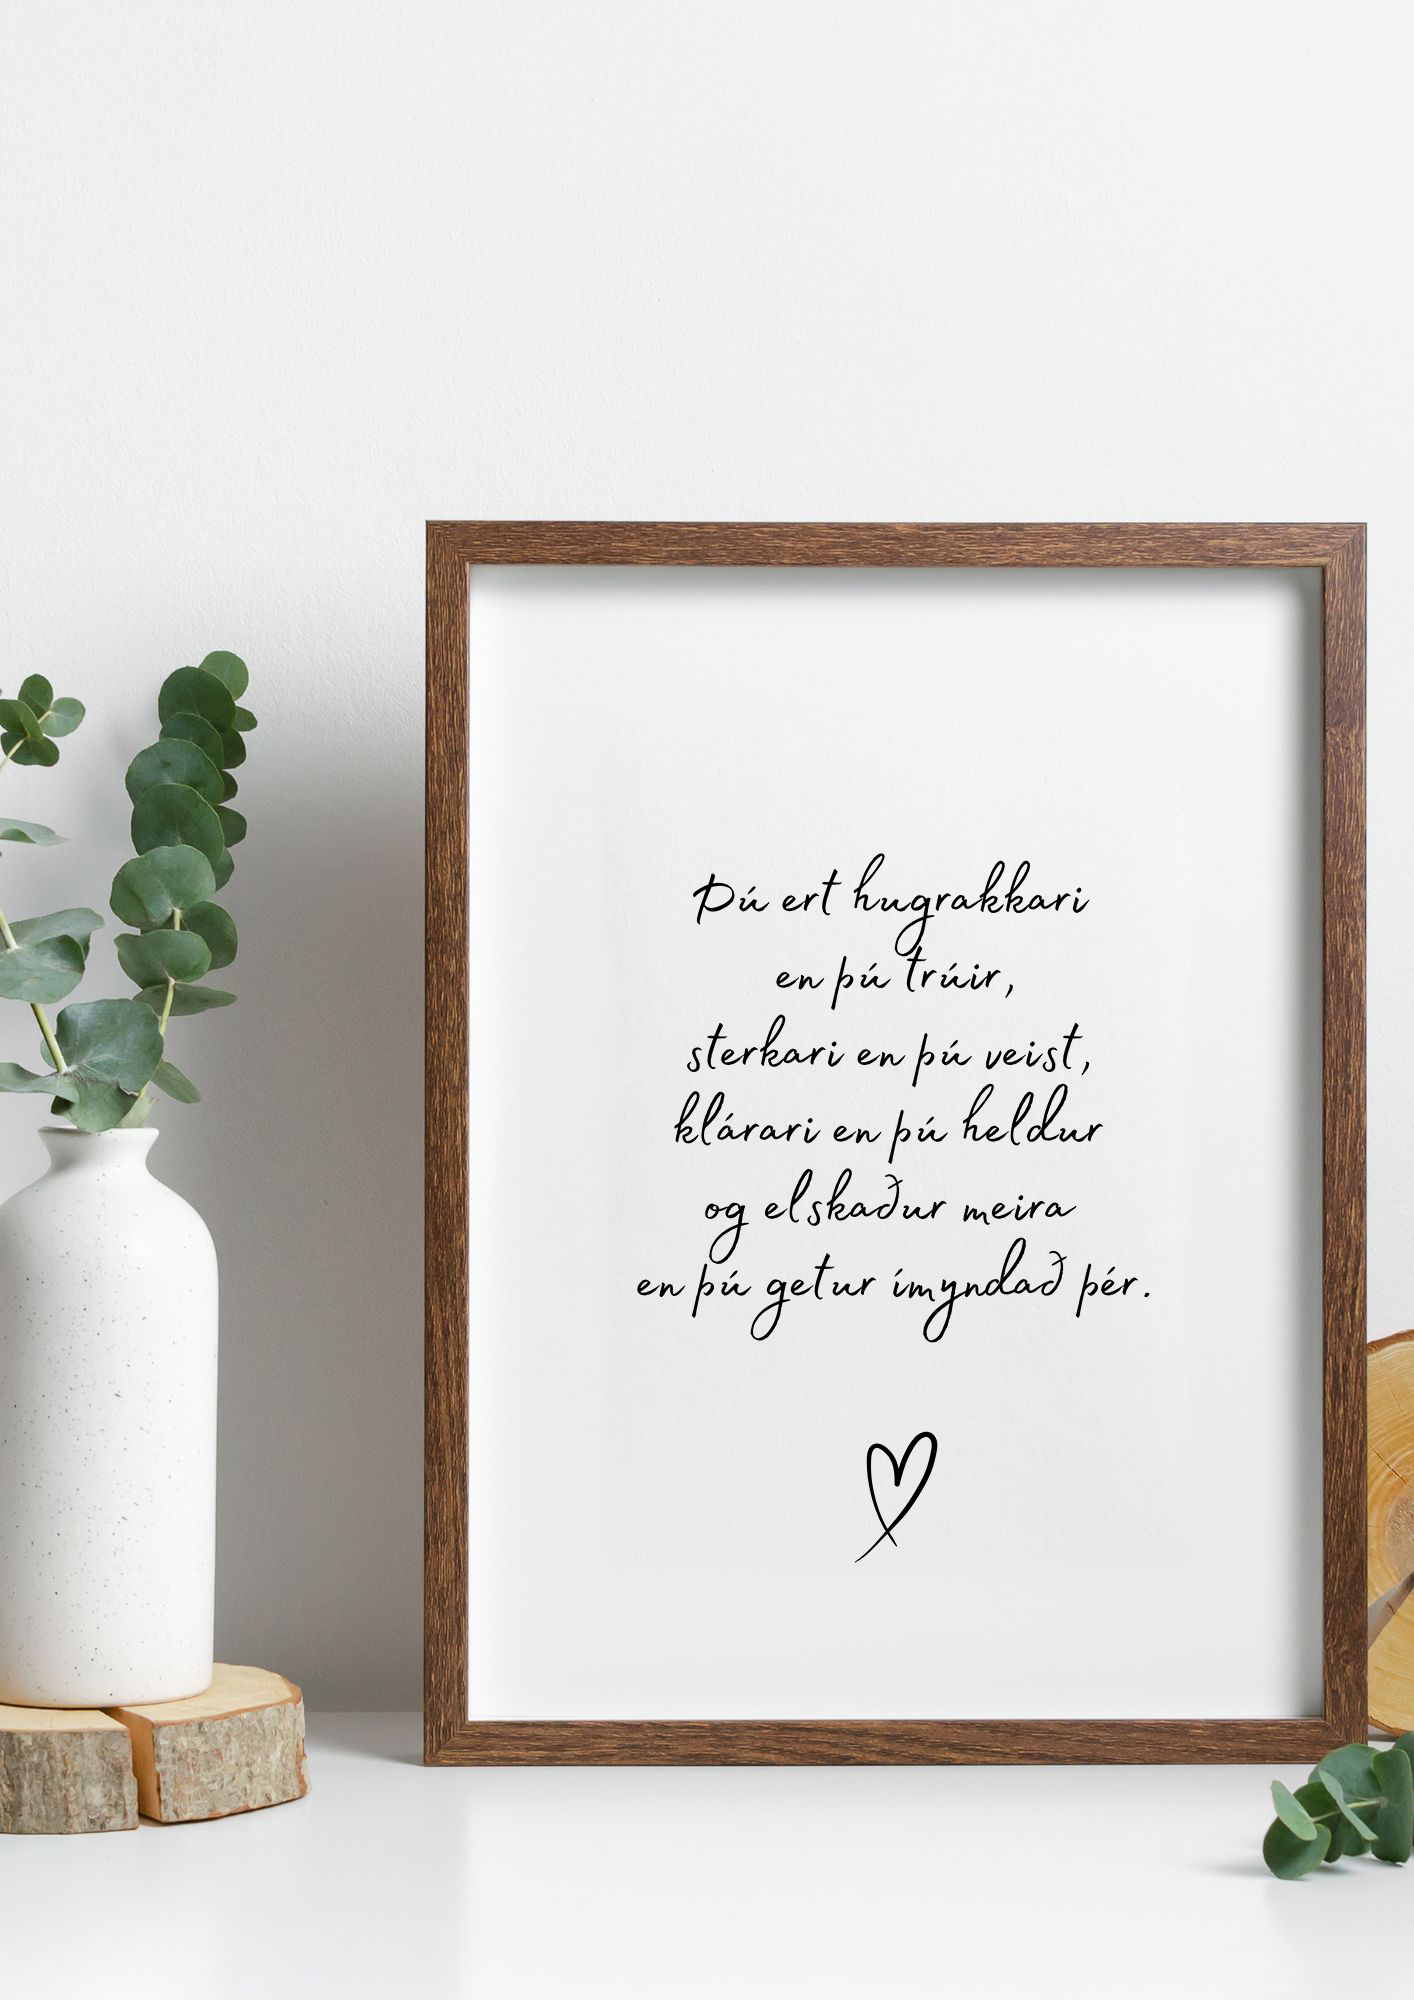 Þú ert hugrakkari
en þú trúir,
sterkari en þú veist,
klárari en þú heldur
og elskaður meira
en þú getur ímyndað þér.